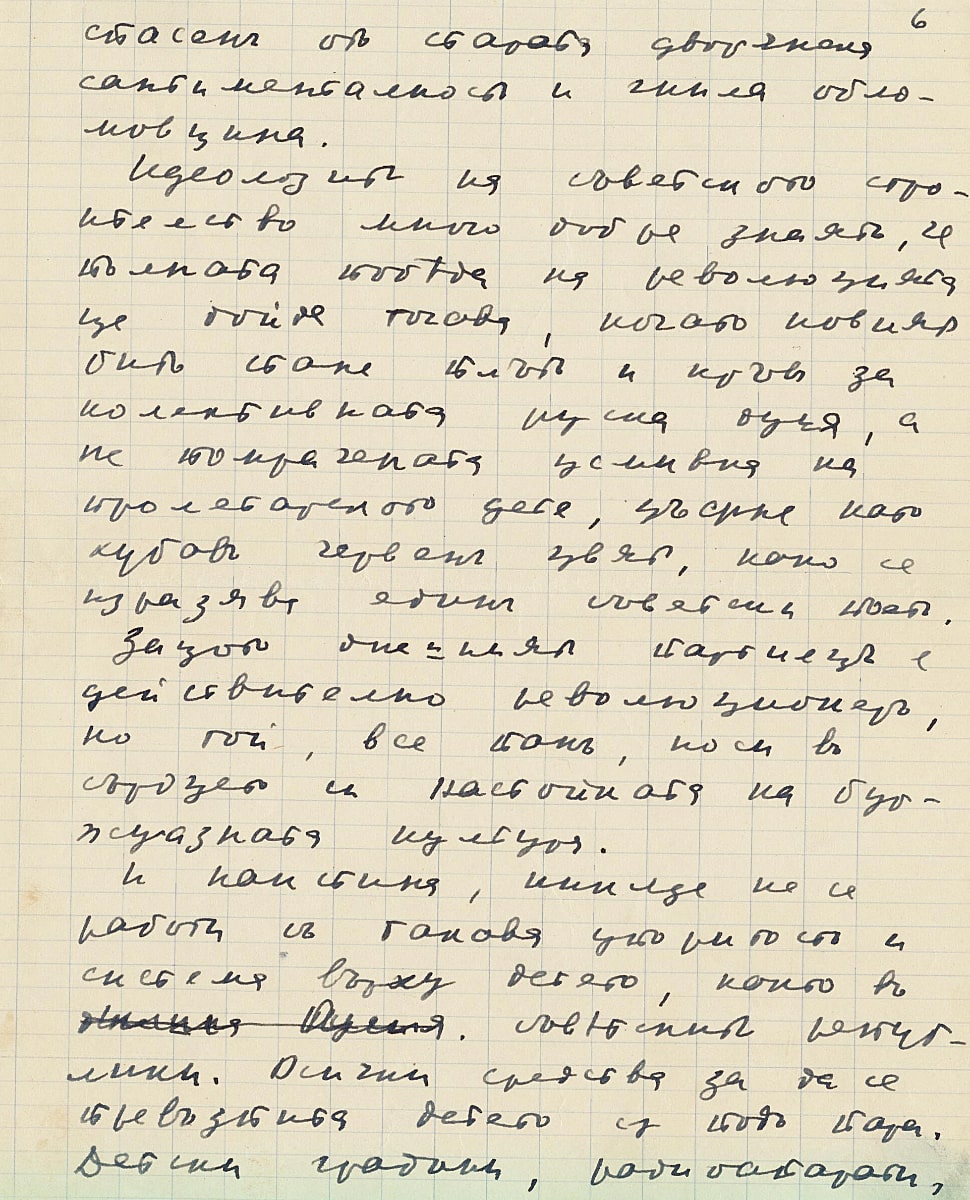 6
спасенъ отъ старата дворянска
сантименталность и гнила обло-
мовщина.
Идеолозитѣ на съветското стро-
ителство много добре знаятъ, че
пълната победа на революцията
ще дойде тогава, когато новиятъ
битъ стане плъть и кръвь за
колективната руска душа, а
не помрачената усмивка на
пролетарското дете, цъфне като
хубавъ червенъ цвятъ, како се
изразява единъ съветски поетъ.
Защото днешниятъ партиецъ е
действително революционеръ,
но той, все пакъ, носи въ
сърцето си настойката на бур-
жуазната култура.
И наистина, никѫде не се
работи съ такова упоритость и
система върху детето, както въ
днешна Русия. Съвѣтскитѣ репуб-
лики. Всички средства за да се
превъзпита детето сѫ подъ пара.
Детски градини, радиоапарати,